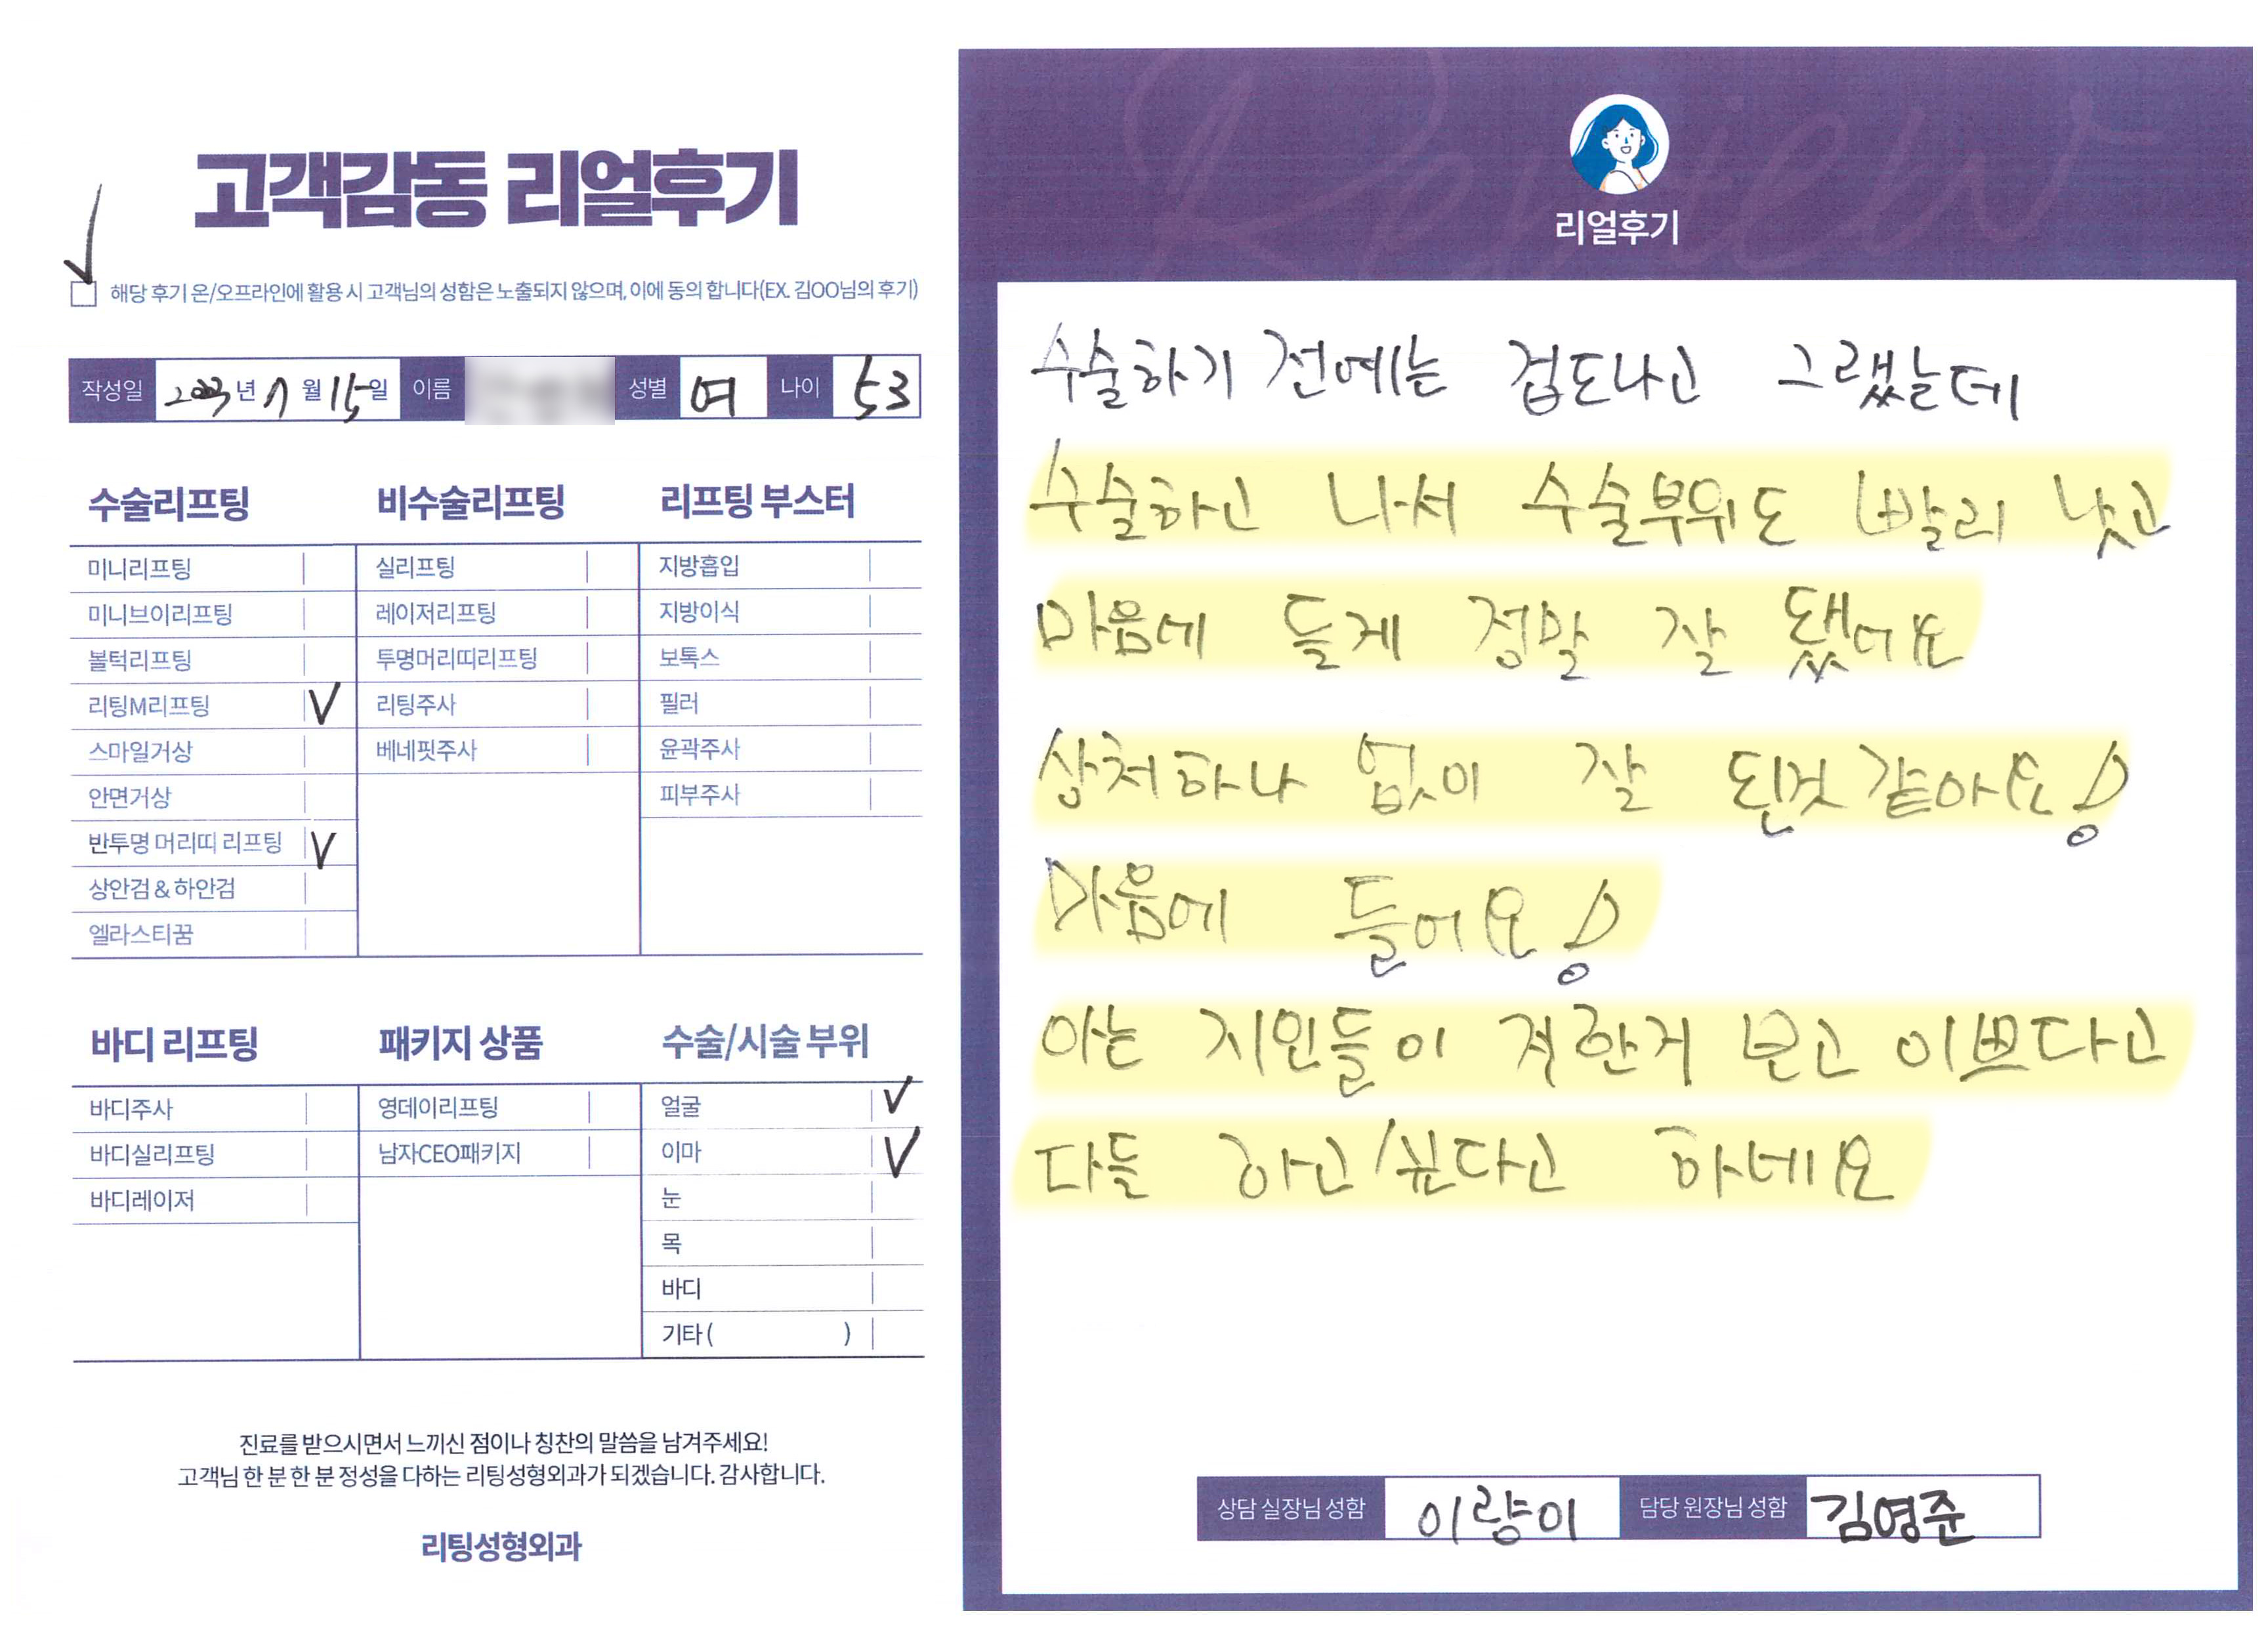 고객감동 리얼후기
해당 후기 온/오프라인에 활용 시 고객님의 성함은 노출되지 않으며, 이에 동의 합니다(EX. 김OO님의 후기)
작성일 2023년 7월 15일 이름 성별 여 나이 53
수술리프팅
미니리프팅
미니브이리프팅
볼턱리프팅
리팅M리프팅 V
스마일거상
안면거상
반투명 머리띠 리프팅 V
상안검 & 하안검
엘라스티꿈
비수술리프팅
실리프팅
레이저리프팅
투명머리띠리프팅
리팅주사
베네핏주사
리프팅 부스터
지방흡입
지방이식
보톡스
필러
윤곽주사
피부주사
바디 리프팅
바디주사
바디실리프팅
바디레이저
패키지 상품
영데이리프팅
남자CEO패키지
수술/시술 부위
얼굴 V
이마 V
눈
목
바디
기타 ( )
진료를 받으시면서 느끼신 점이나 칭찬의 말씀을 남겨주세요!
고객님 한 분 한 분 정성을 다하는 리팅성형외과가 되겠습니다. 감사합니다.
리팅성형외과
Review
리얼후기
수술하기 전에는 겁도나고 그랬는데
수술하고 나서 수술부위도 빨리 낫고
마음에 들게 정말 잘 됐어요
상처하나 없이 잘 된것 같아요!
마음에 들어요!
아는 지인들이 저한거 보고 이쁘다고
다들 하고싶다고 하네요
상담 실장님 성함 이량이 담당 원장님 성함 김영준